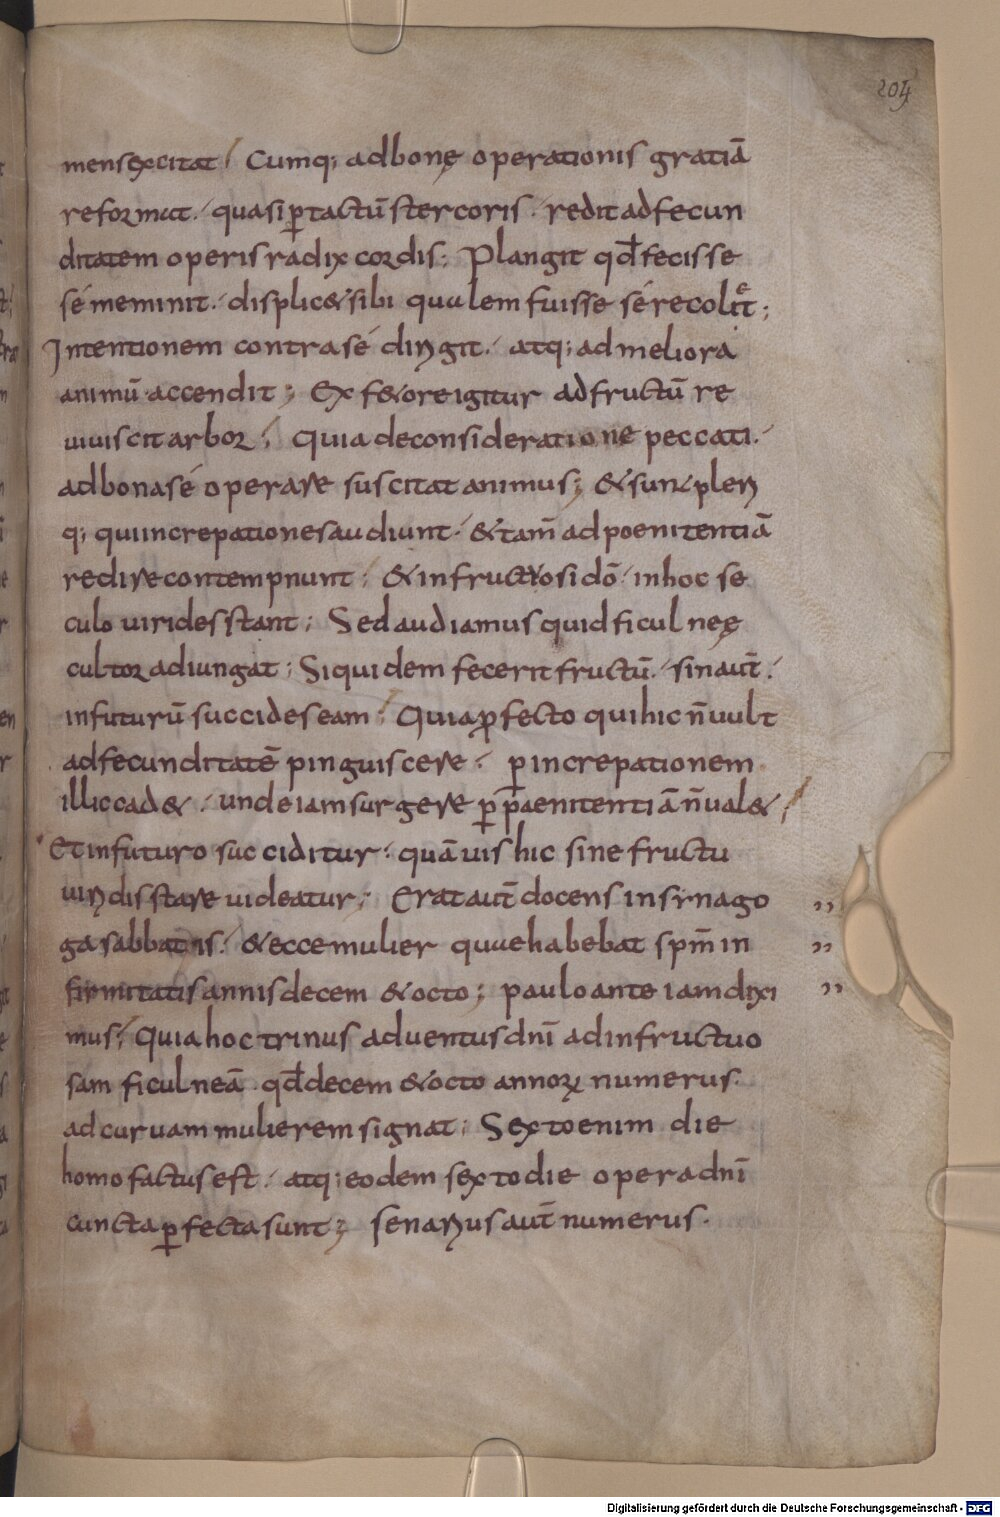 204
mens excitat; Cumq; ad bonę operationis gratiā
reformat. quasi ꝑ tactū stercoris. redit ad fecun
ditatem operis radix cordis; Plangit qđ fecisse
sé meminit. displic& sibi qualem fuisse sé recolit;
Intentionem contra sé dirigit. atq; ad meliora
animū accendit; Ex fe&ore igitur ad fructū re
uiuiscit arbor; Quia de consideratione peccati.
ad bona sé operare suscitat animus; & sunt pleri
q; qui increpationes audiunt. & tam̄ ad poenitentiā
redire contempnunt; & infructuosi dō. in hoc se
culo uirides stant; Sed audiamus quid ficulneę
cultor adiungat; Siquidem fecerit fructū. sin aut̄.
in futurū succides eam; Quia ꝓfecto qui hic n̄ uult
ad fecunditatē pinguiscere. ꝑ increpationem
illic cad&. unde iam surgere ꝑ paenitentiā n̄ ual&;
Et in futuro succiditur. quāuis hic sine fructu
uiridis stare uideatur; Erat aut̄ docens in synago ,,
ga sabbatis. & ecce mulier quae habebat sp̄m in ,,
firmitatis annis decem & octo; paulo ante iam dixi ,,
mus; Quia hoc trinus aduentus dnī ad infructuo
sam ficulneā. qđ decem & octo annoꝝ numerus.
ad curuam mulierem signat; Sexto enim die
homo factus est. atq; eodem sexto die opera dnī
cuncta ꝑfecta sunt; senarius aut̄ numerus.
Digitalisierung gefördert durch die Deutsche Forschungsgemeinschaft - DFG